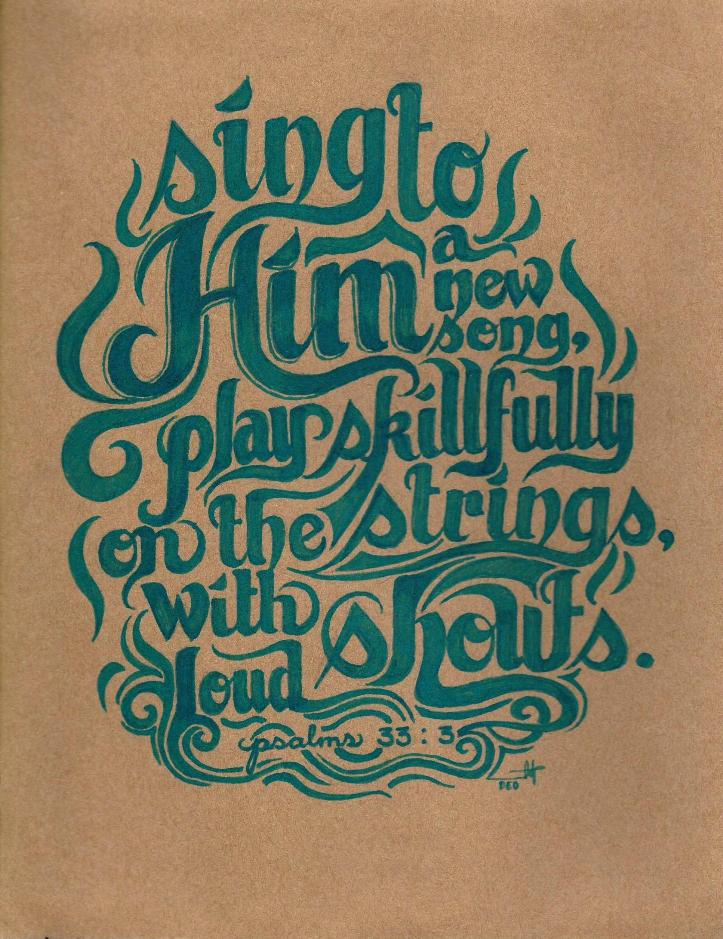 sing to
Him a
new
song,
play skillfully
on the strings,
with shouts.
loud
psalms 33:3
DEO